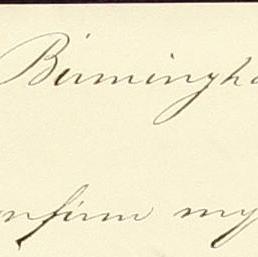 Birmingha
nfirm my